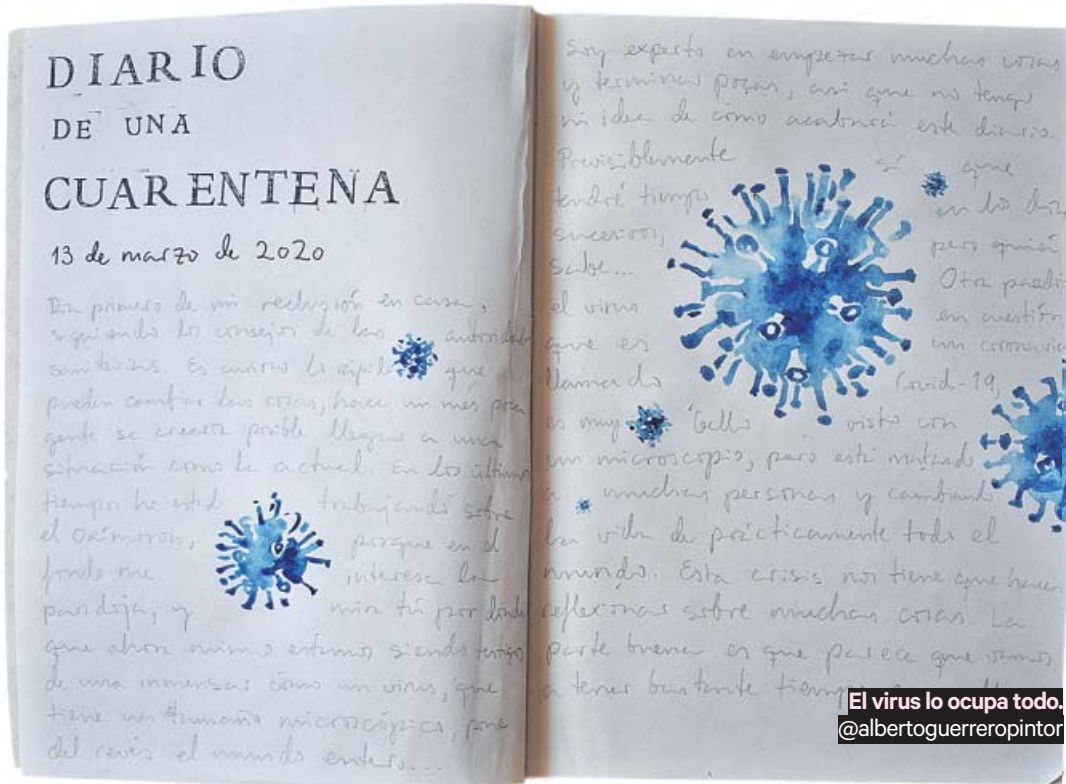 DIARIO
DE UNA
CUARENTENA
13 de marzo de 2020
Día primero de mi reclusión en casa,
siguiendo los consejos de las autoridades
sanitarias. Es curioso lo rápido que
pueden cambiar las cosas, hace un mes poca
gente se creería posible llegar a una
situación como la actual. En los últimos
tiempos he estado trabajando sobre
el Oxímoron, porque en el
fondo me interesa la
paradoja, y mira tú por dónde
que ahora mismo estamos siendo testigos
de una inmensa: cómo un virus, que
tiene un tamaño microscópico, pone
del revés el mundo entero...
Soy experto en empezar muchas cosas
y terminar pocas, así que no tengo
ni idea de cómo acabará este diario.
Previsiblemente sí que
tendré tiempo en los días
sucesivos, pero quién
sabe... Otra paradoja
el virus en cuestión,
que es un coronavirus
llamado Covid-19,
es muy bello visto con
un microscopio, pero está matando
a muchas personas y cambiando
la vida de prácticamente todo el
mundo. Esta crisis nos tiene que hacer
reflexionar sobre muchas cosas. La
parte buena es que parece que vamos
a tener bastante tiempo
El virus lo ocupa todo.
@albertoguerreropintor